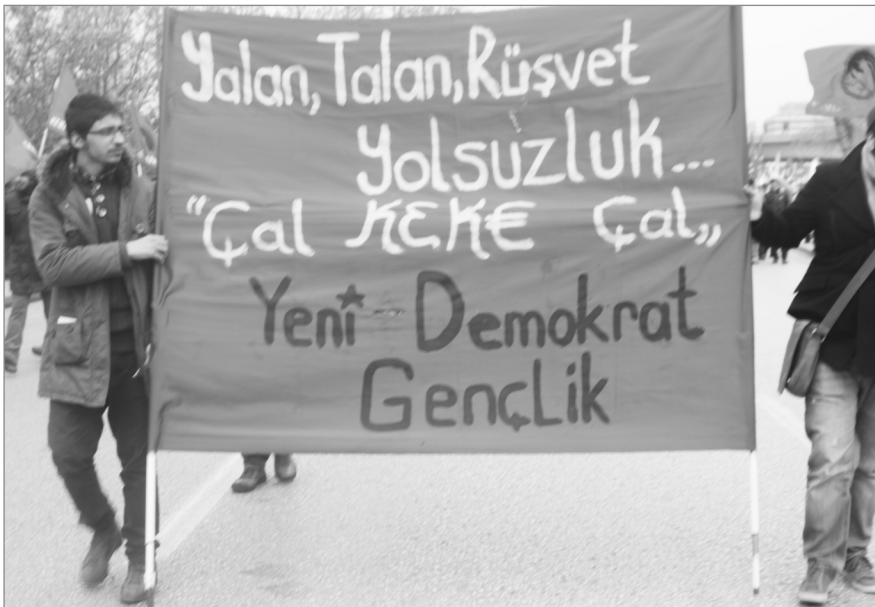 Yalan, Talan, Rüşvet
Yolsuzluk...
"Çal KEK€ Çal„
Yeni - Demokrat
GençLik